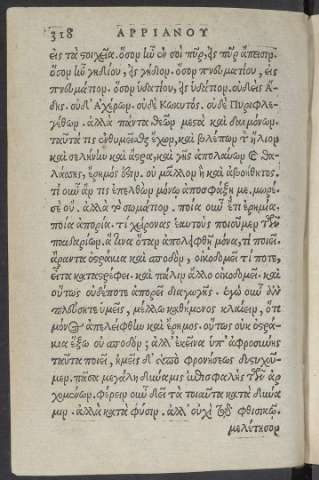 318 ΑΡΡΙΑΝΟΥ
εἰς τὰ στοιχεῖα. ὅσον ἦν ἐν σοὶ πῦρ, εἰς πῦρ ἄπεισιν.
ὅσον ἦν γηδίου, εἰς γήδιον. ὅσον πνευματίου, εἰς
πνευμάτιον. ὅσον ὑδατίου, εἰς ὑδάτιον. οὐδεὶς ᾅ-
δης. οὐδ' Ἀχέρων. οὐδὲ Κωκυτὸς. οὐδὲ Πυριφλε-
γέθων. ἀλλὰ πάντα θεῶν μεστὰ καὶ δαιμόνων.
ταῦτά τις ἐνθυμεῖσθαι ἔχων, καὶ βλέπων τὸν ἥλιον
καὶ σελήνην καὶ ἄστρα, καὶ γῆς ἀπολαύων καὶ θα-
λάσσης, ἔρημός ἐστιν. οὐ μᾶλλον ἢ καὶ ἀβοήθητος.
τί οὖν ἄν τις ἐπελθὼν μόνῳ ἀποσφάξῃ με. μωρὲ
σὲ οὔ. ἀλλὰ τὸ σωμάτιον. ποία οὖν ἔτι ἐρημία.
ποία ἀπορία. τί χείρονας ἑαυτοὺς ποιοῦμεν τῶν
παιδαρίων. ἃ ἵνα ὅταν ἀπολειφθῇ μόνα, τί ποιεῖ.
ἄραντα ὀστράκια καὶ σποδὸν, οἰκοδομεῖ τί ποτε,
εἶτα καταστρέφει. καὶ πάλιν ἄλλο οἰκοδομεῖ. καὶ
οὕτως οὐδέποτε ἀπορεῖ διαγωγῆς. ἐγὼ οὖν ἂν
πλεύσητε ὑμεῖς, μέλλω καθήμενος κλαίειν, ὅτι
μόνος ἀπελείφθην καὶ ἔρημος. οὕτως οὐκ ὀστρά-
κια ἕξω οὐ σποδὸν; ἀλλ' ἐκεῖνα ὑπ' ἀφροσύνης
ταῦτα ποιεῖ, ἡμεῖς δ' ὑπὸ φρονήσεως δυστυχοῦ-
μεν. πᾶσα μεγάλη δύναμις ἐπισφαλὴς τῶν ἀρ
χομένων. φέρειν οὖν δεῖ τὰ τοιαῦτα κατὰ δύνα
μιν. ἀλλὰ κατὰ φύσιν. ἀλλ' οὐχὶ τῷ φθισικῷ.
μελέτησον